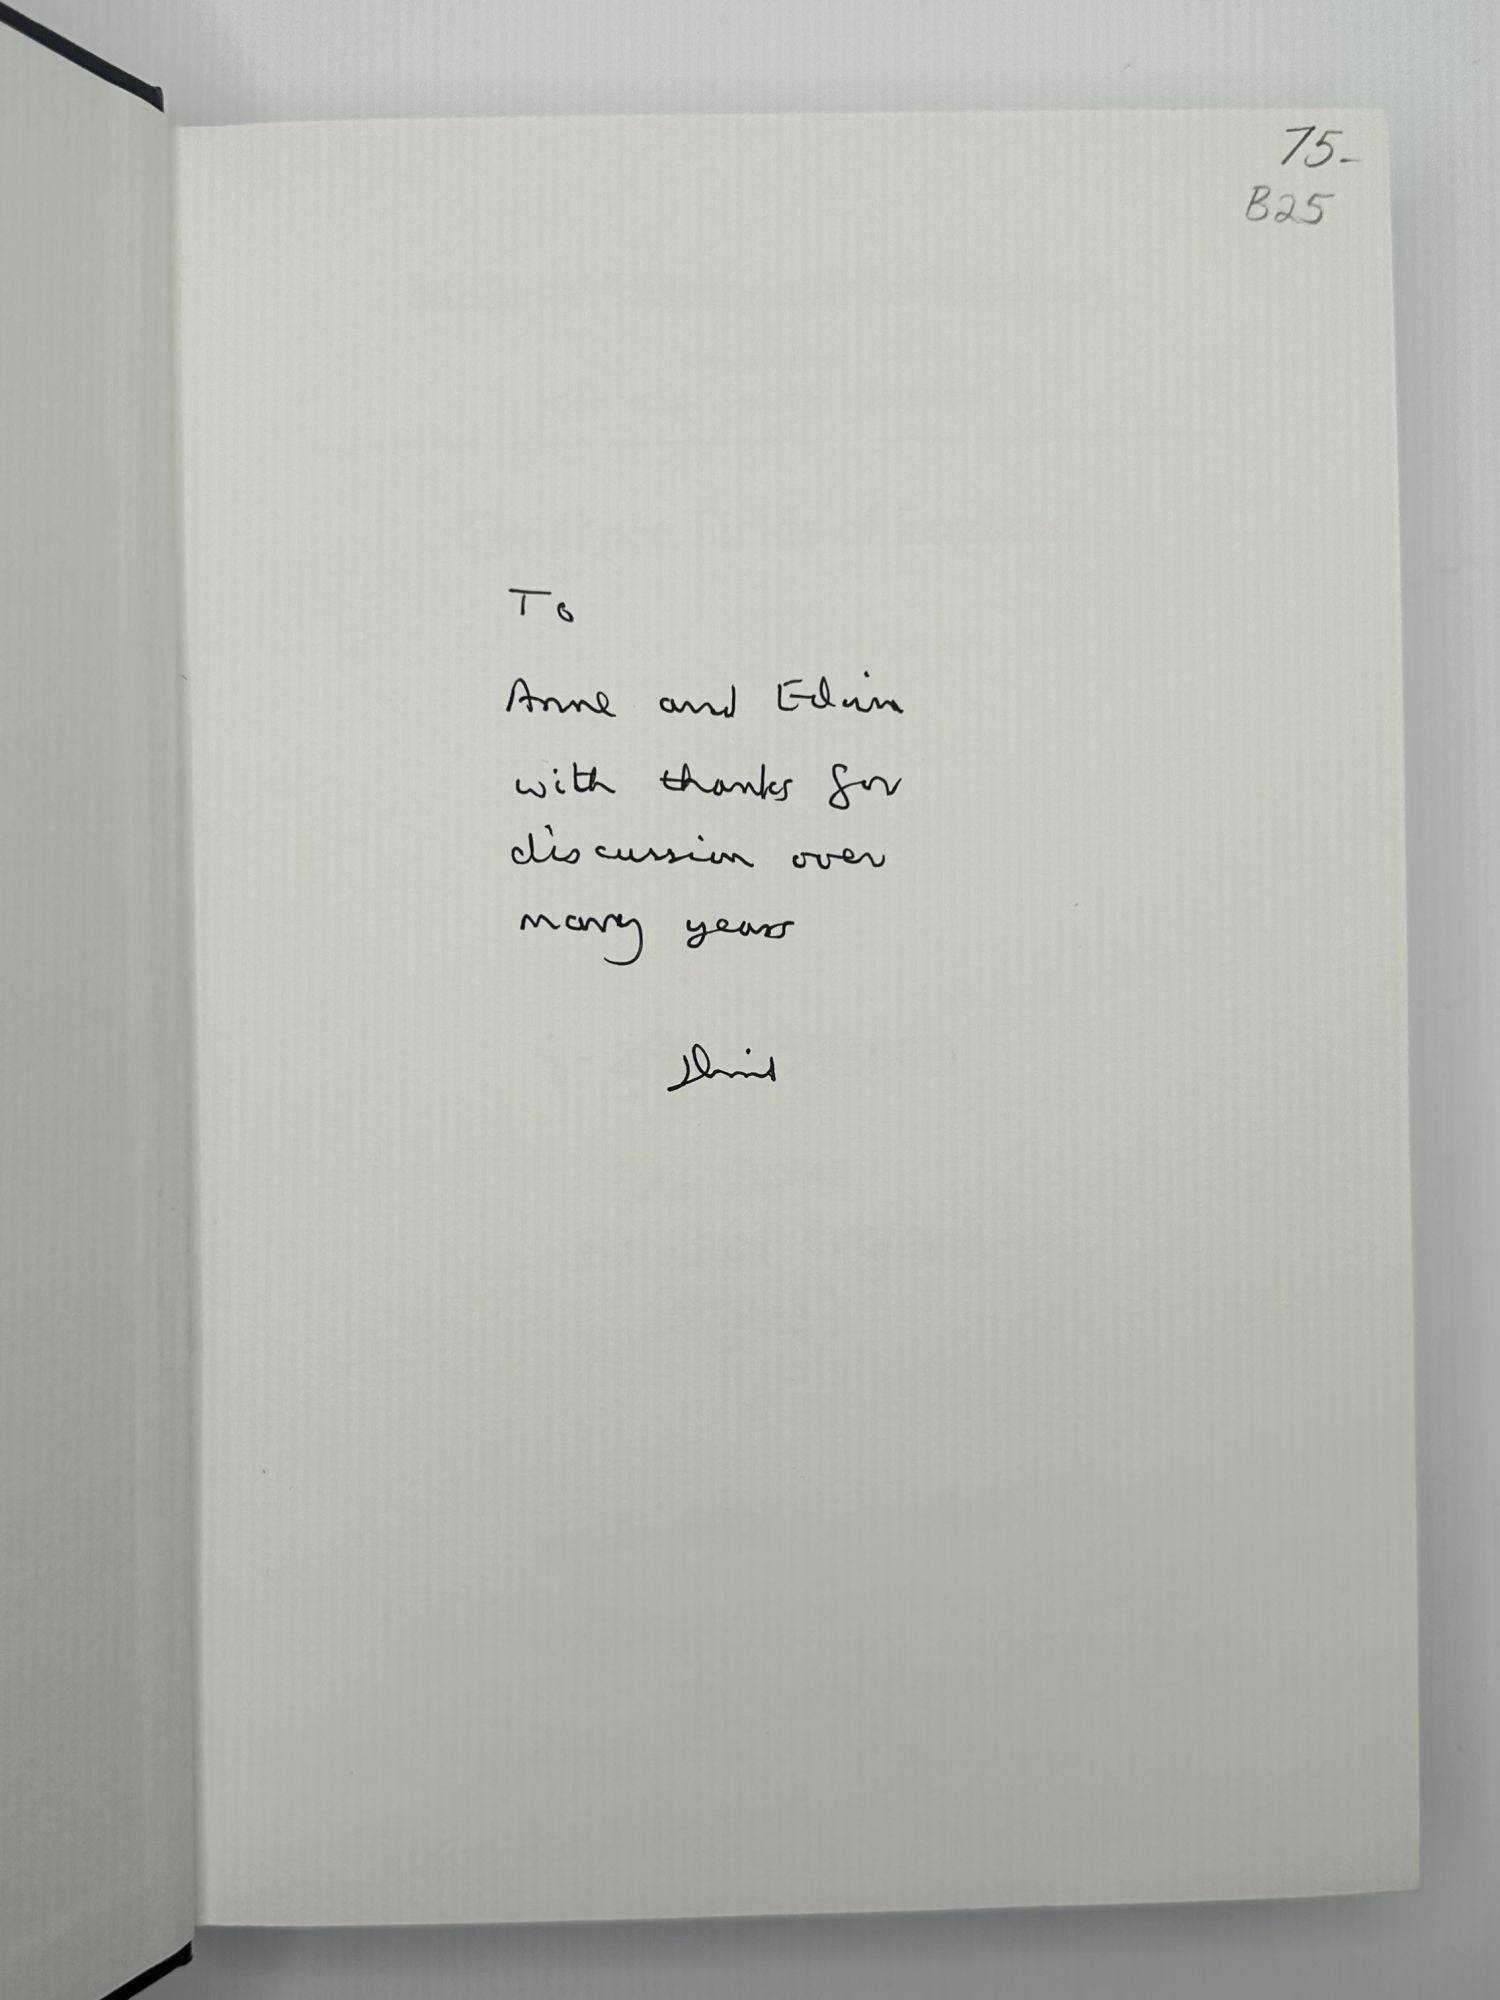 75-
B25
To
Anne and Edwin
with thanks for
discussion over
many years
David